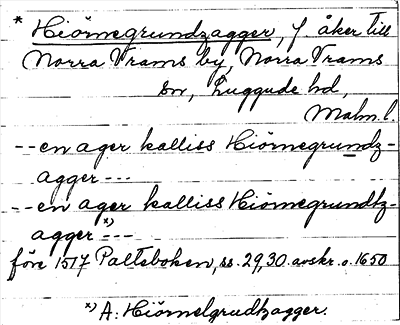 * Hiörnegrundzagger, f åker till
Norra Vrams by, Norra Vrams
sn, Luggude hd,
Malm.l.
--en ager kalliss Hiörnegrundz-
agger---
--en ager kalliss Hiörnegrundtz-
agger x)---
före 1517 Paltsboken, ss. 29,30. avskr. o. 1650
x) A: Hiörnelgrudtzagger.